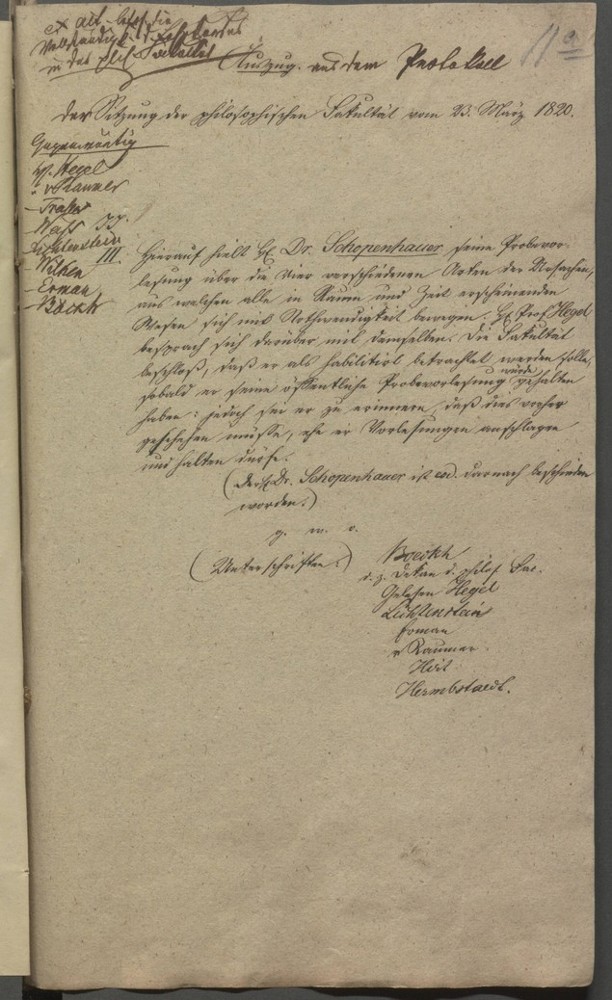 ex act. betref. die
in das phil. Fakultät
11a
Auszug aus dem Protokoll
der Sitzung der philosophischen Fakultät vom 23. März 1820.
Gegenwärtig
H. Hegel
v Raumer
Tralles
Weiß
Lichtenstein
Wilken
Erman
Böckh
III.
Hierauf hielt H. Dr. Schopenhauer seine Probevor-
lesung über die vier verschiedenen Arten der Ursachen,
aus welchen alle in Raum und Zeit erscheinenden
Wesen sich mit Nothwendigkeit bewegen. H. Prof. Hegel
besprach sich darüber mit demselben. Die Fakultät
beschloß, daß er als habilitirt betrachtet werden solle,
sobald er seine öffentliche Probevorlesung gehalten
würde
haben: jedoch sei er zu erinnern, daß dies vorher
geschehen müsse, ehe er Vorlesungen anschlagen
und halten dürfe.
(Der H. Dr. Schopenhauer ist darnach beschieden
worden.)
(Unterschriften.)
Boeckh
d. z. Dekan d. philos. Fac.
Gelesen Hegel
Lichtenstein
Erman
v Raumer
Hirt
Hermbstaedt.